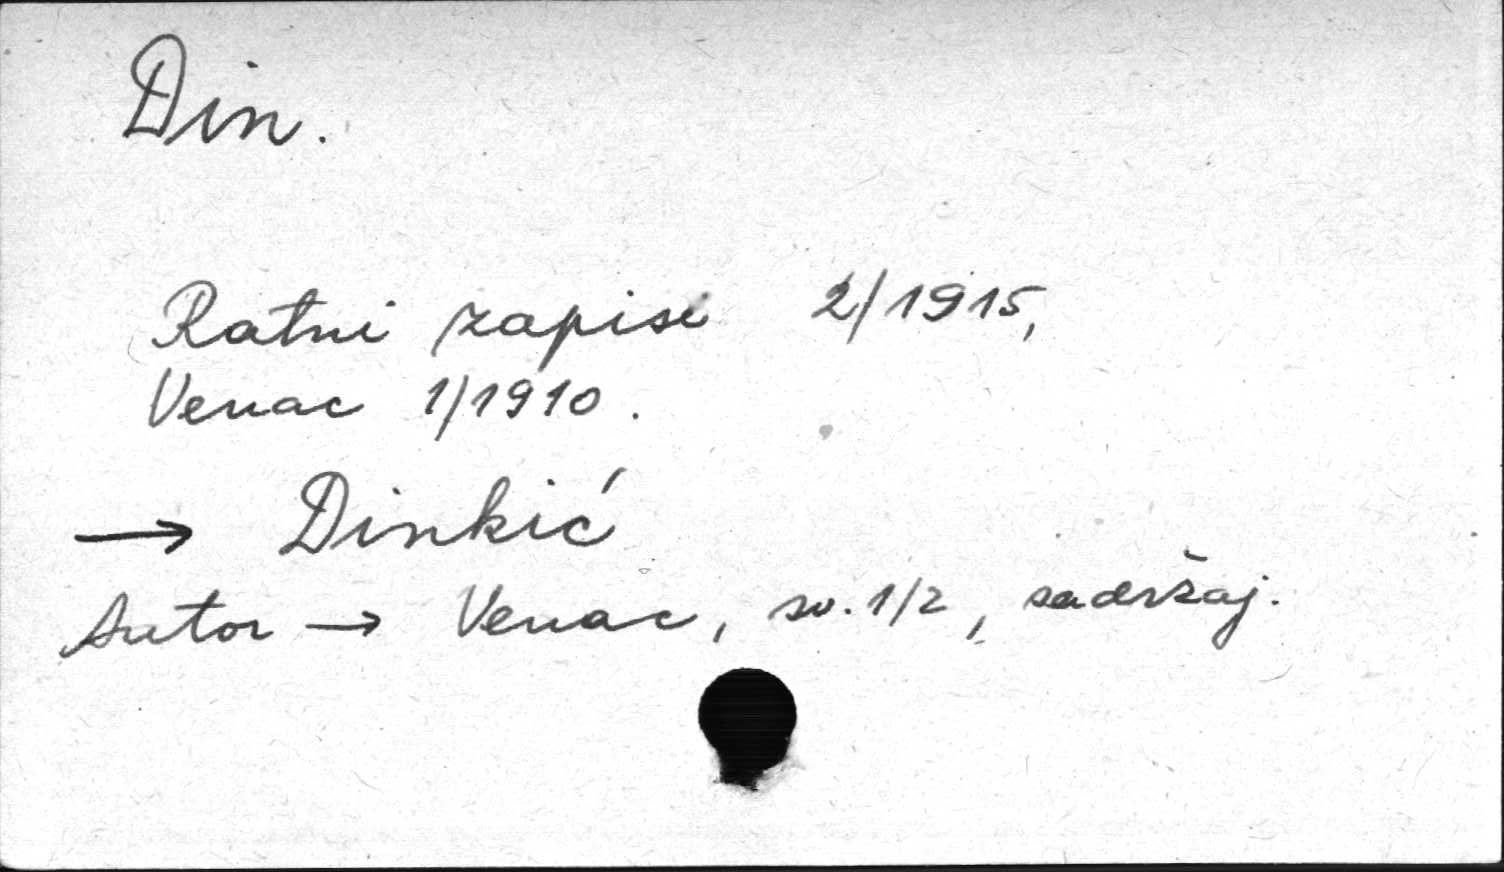 Din.
Ratni zapisi 2/1915,
Venac 1/1910.
→ Dinkić
Autor → Venac, sv. 1/2, sadržaj.